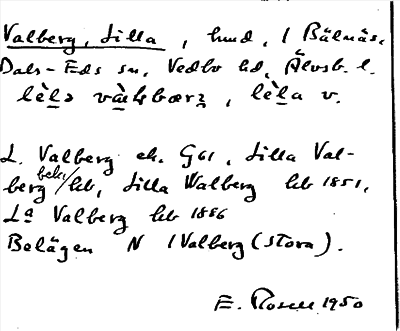 Valberg, Lilla, hmd, 1 Bälnäs,
Dals-Eds sn, Vedbo hd, Älvsb. l.
lèlə vàlsbærz, lèla v.
L. Valberg ek. G61, Lilla Val-
berg bebt/hb, Lilla Walberg hb 1851,
La Valberg hb 1886
Belägen N 1 Valberg (Stora).
E. Rosell 1950